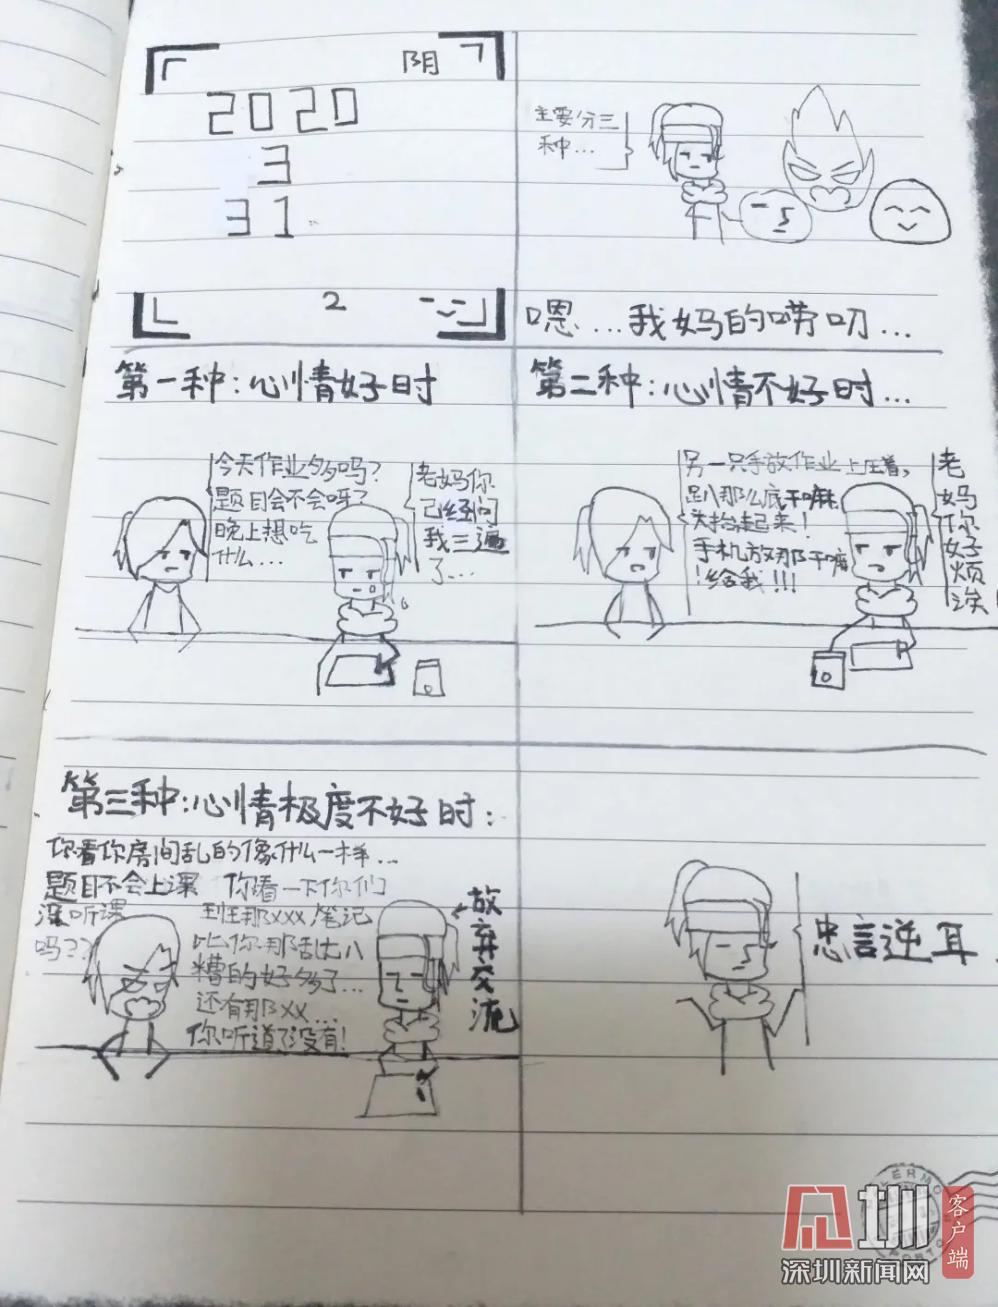 阴
2020
3
31
2
主要分三
种...
嗯...我妈的唠叨...
第一种:心情好时
今天作业多吗?
题目会不会呀?
晚上想吃
什么...
老妈你
已经问
我三遍
了...
第二种:心情不好时...
另一只手放作业上压着,
趴那么底干嘛
头抬起来!
手机放那干嘛
!给我!!!
老
妈
你
好
烦
诶!
第三种:心情极度不好时:
你看你房间乱的像什么一样...
题目不会上课
没听课
吗??
你看一下你们
班那xxx笔记
比你那乱七八
糟的好多了...
还有那xx...
你听道了没有!
放
弃
交
流
忠言逆耳.
深圳新闻网
客户端